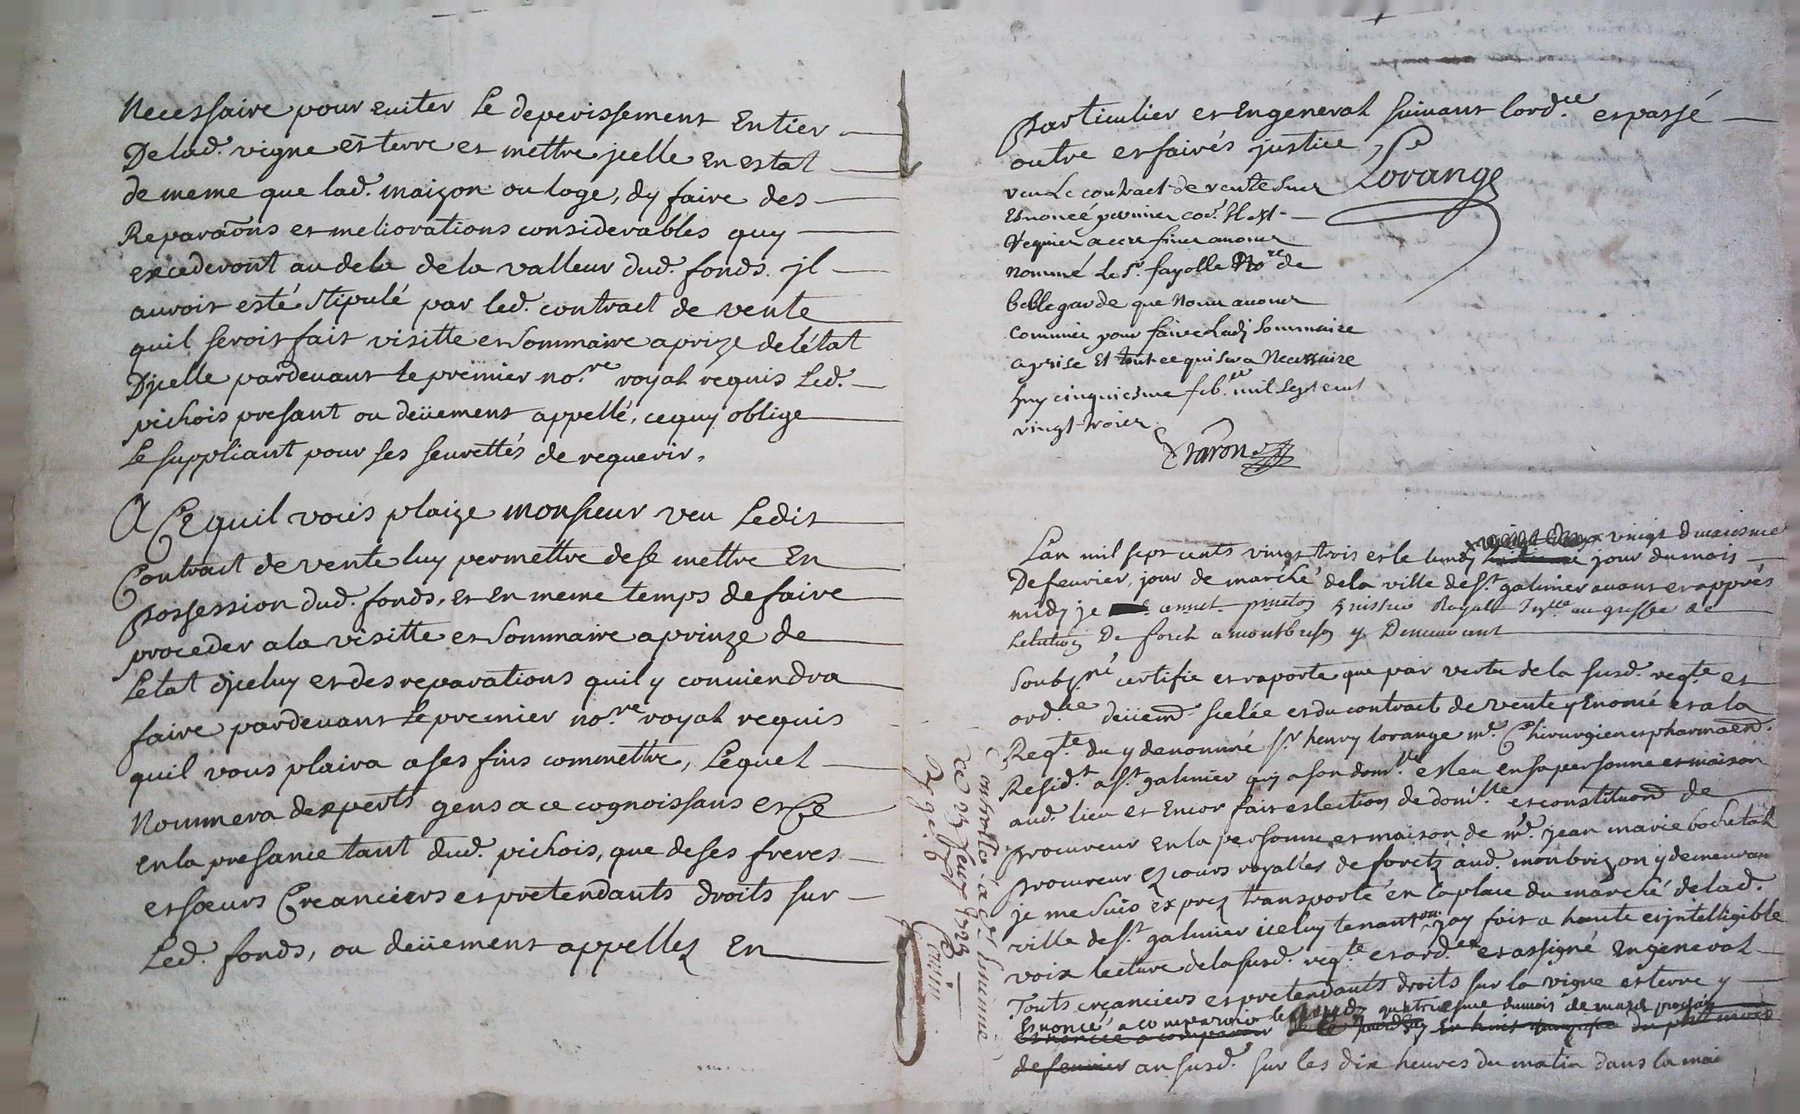 Necessaire pour euiter Le deperissement Entier
De lad. vigne et terre et mettre jcelle En estat
de meme que lad. maizon ou loge, dy faire des
Reparaõns et meliorations considerables quy
excederont au dela de la valleur dud. fonds. jl
auroit esté stipulé par led. contract de vente
quil seroit fait visitte et Sommaire aprize de létat
Djcelle pardeuant Le premier no.re royal requis Led.
pichois presant ou deüement appellé, cequy oblige
Le suppliant pour ses seurettés de requerir.
A CE quil vous plaize monsieur veu Ledit
Contract de vente luy permettre de se mettre En
possession dud. fonds, et En meme temps de faire
proceder a la visitte et Sommaire aprinze de
Létat djceluy et des reparations quil y conuiendra
faire pardeuant Le premier no.re royal requis
quil vous plaira a ses fins commettre, Lequel
Nommera dexperts gens a ce cognoissans et Ce
en la presance tant dud. pichois, que de ses freres
et sœurs Creanciers et pretendants droits sur
Led. fonds, ou deüement appellez En
particulier et En general suiuant lord.ce et passé
outre et fairés justice Lorange
veu Le contract de vente
Enoncé
Requier a ces fins auons
nommé Le Sr. fayolle No.re de
bellegarde que Nous auons
commis pour faire Ladj Sommaire
aprise Et tout ce qui sera Necessaire
huy cinquiesme feb. mil Sept cent
vingt trois
Lan mil sept cents vingt trois et le lundy vingt deuxiesme
jour du mois
De feurier, jour de marché de la ville de St. galmier auant et apprés
midy je huissier Royal au greffe de
Lelection De forez a montbrison y Demeurant
Soubz.né certifie et raporte que par vertu de la susd. reqte. et
ord.ce deüemt. scelée et du contract de vente y Enoncé et a la
Reqte. du y denommé Sr. henry lorange me. Chirurgien
Resid.t a St. galmier quj a son dom.lle esleu en sa personne et maison
aud. lieu et Encor fait eslection de domi.lle et constituõn de
procureur En la personne et maison de me. jean marie bochetal
procureur ez cours royalles de forestz aud. monbrizon y demeurant
je me suis exprez transporté en la place du marché de lad.
ville de St. galmier icelluy tenant ou jay fait a haute et jntelligible
voix lecture de la susd. reqte. et ord.ce et assigné En general
Touts creanciers et pretendants droits sur la vigne et terre y
Enoncé a comparoir le jeudy quatriesme du mois de mars prochain
an susd. sur les dix heures du matin dans la mai
Controllé a St galmier
ce 22 feur 1723